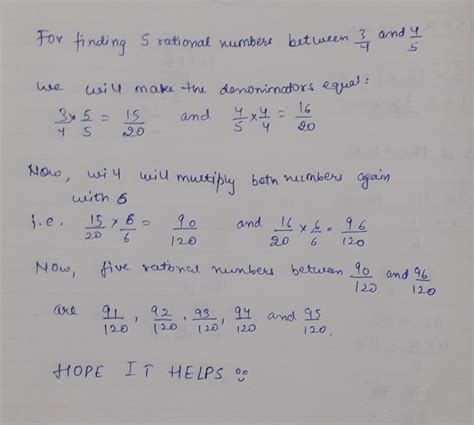 For finding 5 rational numbers between 3/4 and 4/5
we will make the denonimators equal:
3/4 x 5/5 = 15/20 and 4/5 x 4/4 = 16/20
Now, wi4 will multiply both numbers again
with 6
i.e. 15/20 x 6/6 = 90/120 and 16/20 x 6/6 = 96/120
Now, five rational numbers between 90/120 and 96/120
are 91/120, 92/120, 93/120, 94/120 and 95/120.
HOPE IT HELPS